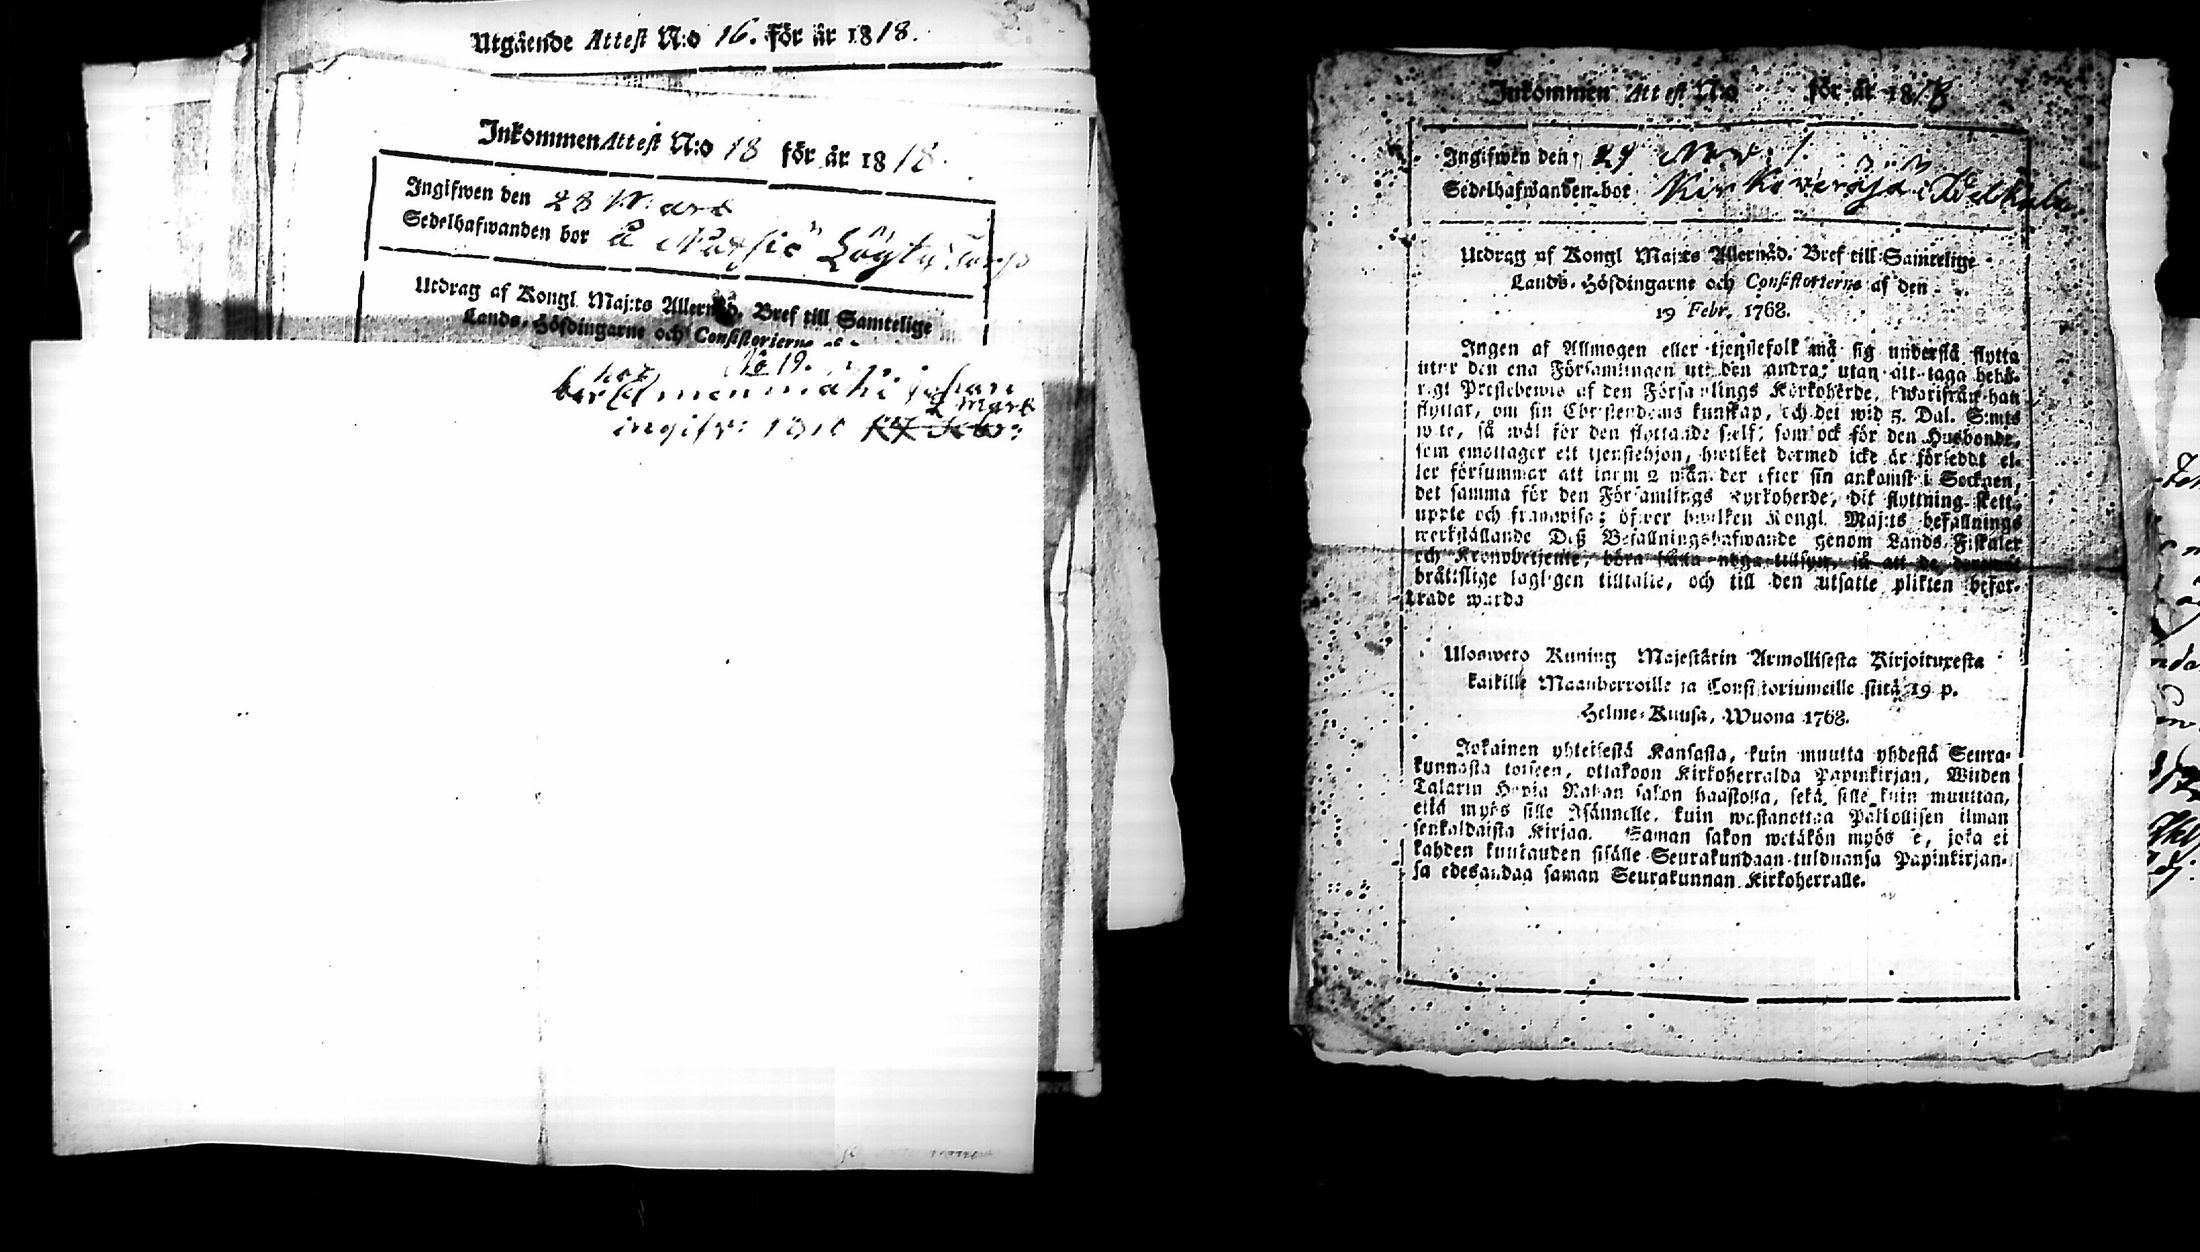 Utgående Attest N:o 16. för år 1818.
Inkommen Attest N:o 18 för år 1818.
Ingifwen den 28 Mars
Sedelhafwanden bor å
Utdrag af Kongl Maj:ts Allernåd. Bref till Samtelige
Lands-Höfdingarne och Consistorierne af
No 19.
bor hos
2 Mars
ingifv: 1818
Inkommen Attest N:o för år 1818
Ingifwen den 29 Nov:
Sedelhafwanden bor
Utdrag af Kongl Maj:ts Allernåd. Bref till Samtelige
Lands-Höfdingarne och Consistorierne af den
19 Febr. 1768.
Ingen af Allmogen eller tjenstefolk må sig understå flytta
utur den ena Församlingen uti den andra; utan att taga behö-
rigt Prestebewis af den Församlings Kyrkoherde, hwarifrån han
flyttar, om sin Christendoms kunskap, och det wid 5. Dal. S:mts
wite, så wäl för den flyttande sielf, som ock för den Husbonde,
som emottager ett tjenstehjon, hwilket dermed icke är försedt el-
ler försummar att inom 2 månader efter sin ankomst i Socknen,
det samma för den Församlings Kyrkoherde, dit flyttning skett,
uppte och framwisa; öfwer hwilken Kongl. Maj:ts befallnings
werkställande Deß Befallningshafwande genom Lands-Fiskaler
och Kronobetjente, böra hålla noga tillsyn, så att de deremot
bråtslige lagligen tilltalte, och till den utsatte plikten befor-
drade warda
Uloswето Kuning Majestätin Armollisesta Kirjoituxesta
kaikille Maanherroille ja Consistoriumeille siitä 19 p.
Helme-Kuusa, Wuona 1768.
Jokainen yhteisestä Kansasta, kuin muutta yhdestä Seura-
kunnasta toiseen, ottakoon Kirkoherralda Papinkirjan, Wiiden
Talarin Hopia Rahan sakon haastolla, sekä sille kuin muuttan,
että myös sille Isännelle, kuin wastanottaa Palkollisen ilman
senkaldaista Kirjaa. Saman sakon wetäkön myös se, joka ei
kahden kuukauden sisälle Seurakundaan tulduansa Papinkirjan-
sa edesandaa saman Seurakunnan Kirkoherralle.